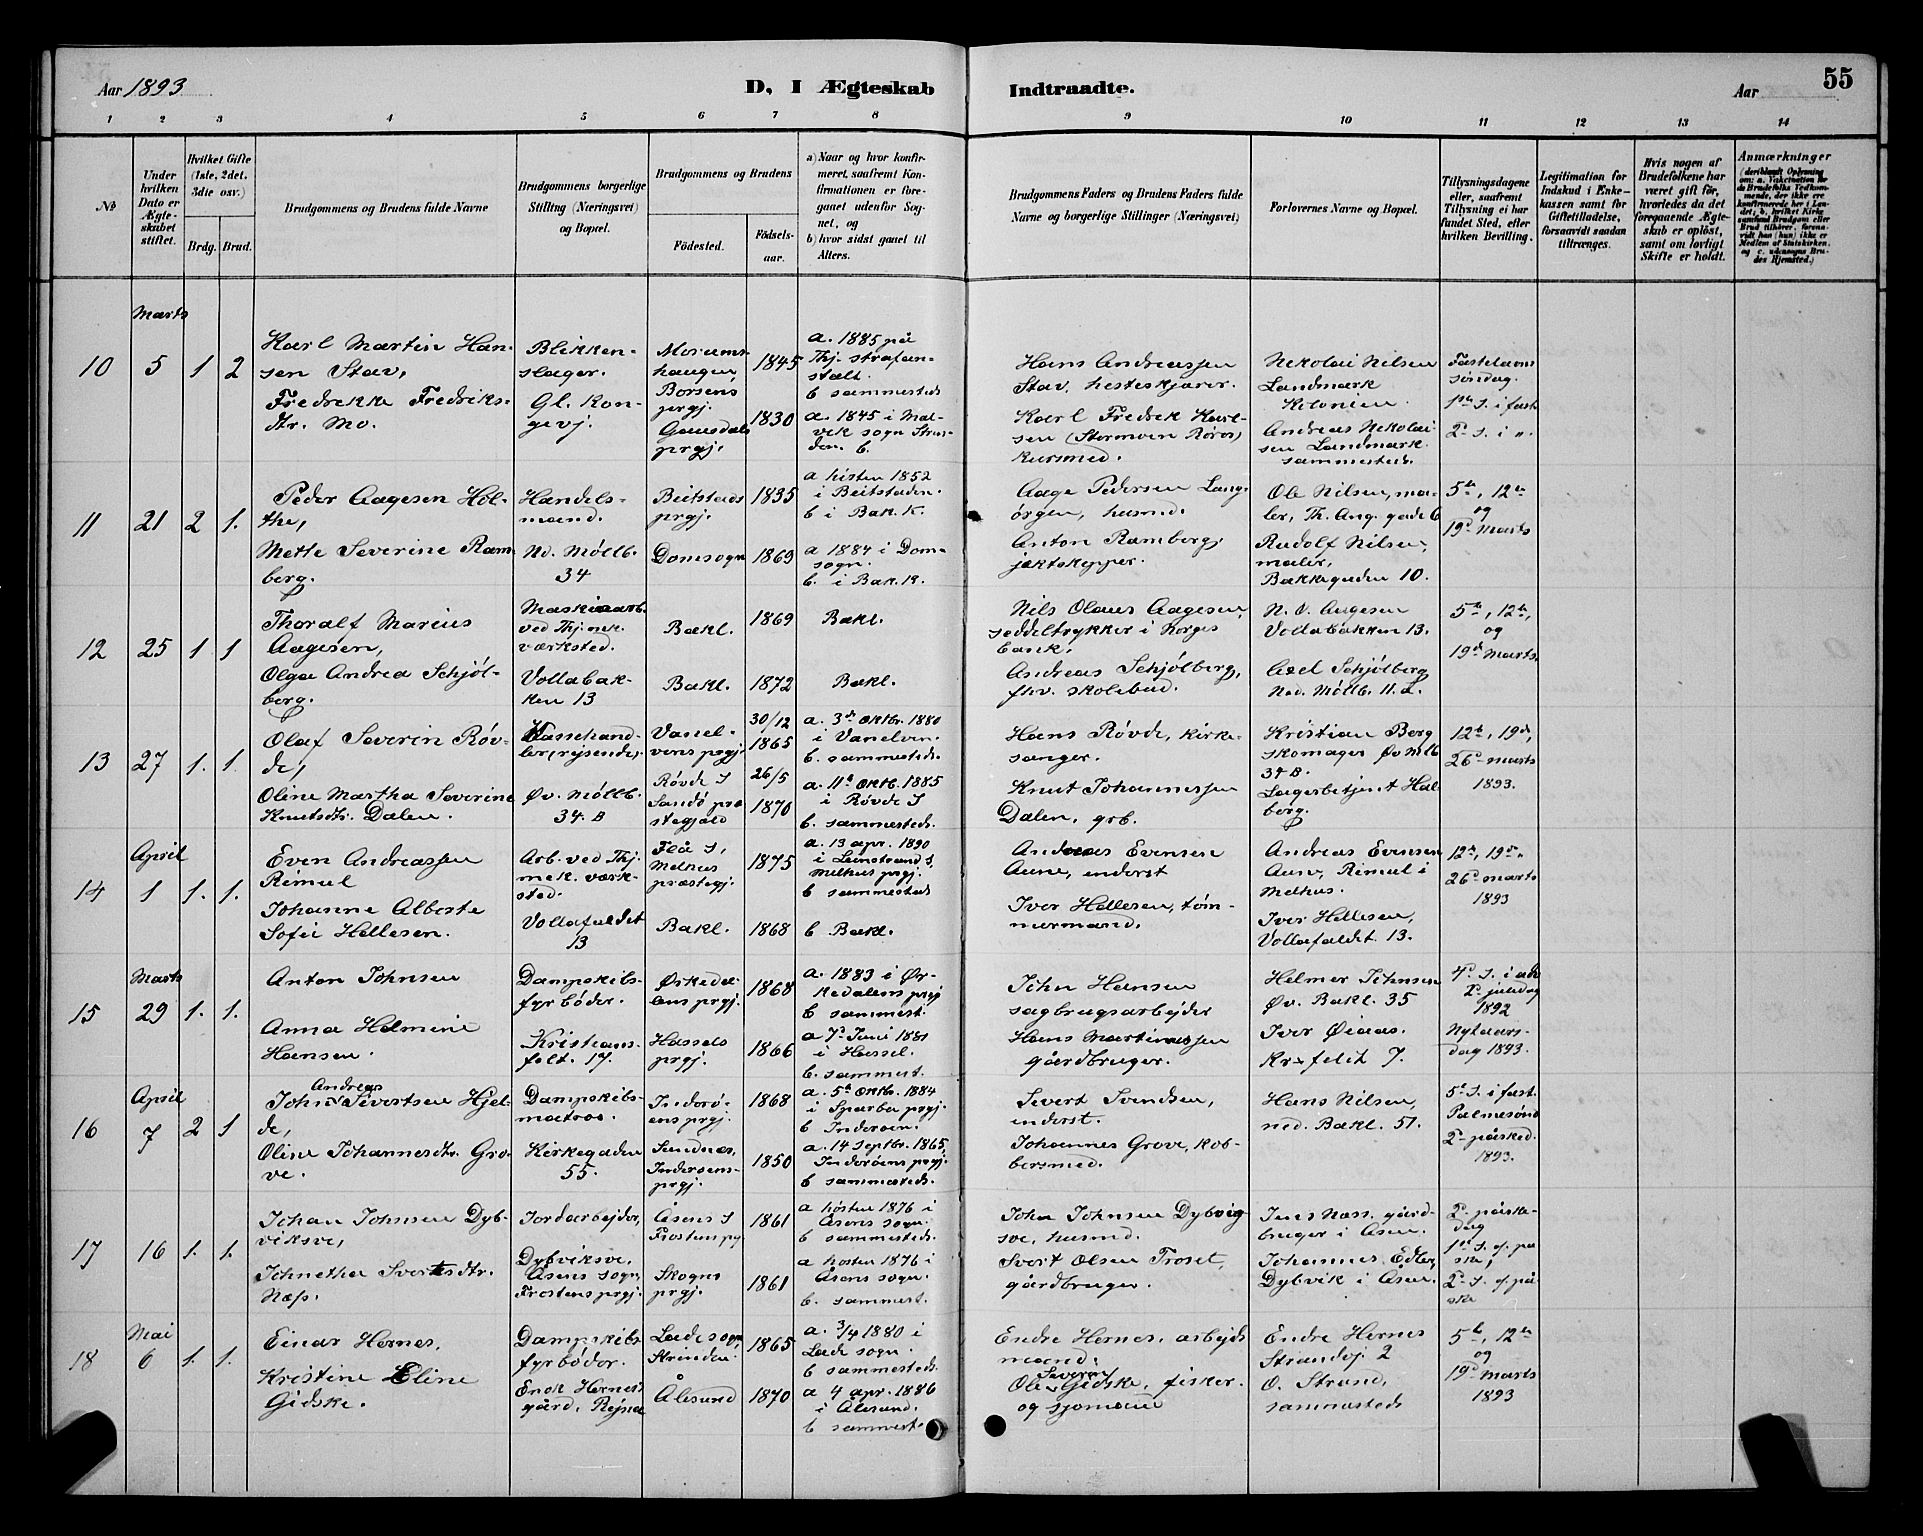 Aar 1893
D. I Ægteskab
Indtraadte.
Aar
55
1 2 3 4 5 6 7 8 9 10 11 12 13 14
№
Under hvilken Dato er Ægteskabet stiftet.
Hvilket Gifte (1ste, 2det, 3die osv.)
Brdg. Brud.
Brudgommens og Brudens fulde Navne
Brudgommens borgerlige Stilling (Næringsvei) og Bopæl.
Brudgommens og Brudens
Fødested.
Fødselsaar.
a) Naar og hvor konfirmeret, saafremt Konfirmationen er foregaaet udenfor Sognet, og
b) hvor sidst gaaet til Alters.
Brudgommens Faders og Brudens Faders fulde Navne og borgerlige Stillinger (Næringsvei)
Forlovernes Navne og Bopæl.
Tillysningsdagene eller, saafremt Tillysning ei har fundet Sted, efter hvilken Bevilling.
Legitimation for Indskud i Enkekassen samt for Giftetilladelse, forsaavidt saadan tiltrænges.
Hvis nogen af Brudefolkene har været gift før, hvorledes da det foregaaende Ægteskab er opløst, samt om lovligt Skifte er holdt.
Anmærkninger
Marts
10 5 1 2
Karl Martin Hansen Stav,
Fredrekke Fredriksdtr. Mo.
Blikkenslager.
Gl. Kongevj.
haugen, Borsens prgj.
Gausdals prgj.
1845
1830
a. 1885 på Thj. strafanstalt.
b sammesteds
a. 1845 i Malvik sogn Strinden. b.
Hans Andreassen Stav, hesteskjærer.
Karl Fredrik Karlsen (Stormoen Røros) kursmed.
Nikolai Nilsen Landmark Kilonien.
Andreas Nikolaisen Landmark sammesteds.
Fastelavnssøndag.
1ste S. i fast
2. S. i "
11 21 2 1.
Peder Aagesen Holthe,
Mette Severine Ramberg.
Handelsmand.
Nd. Møllb. 34
Beitstads prgj.
Domsogn
1835
1869
a hösten 1852 i Beitstaden.
b i Bak. K.
a 1884 i Domsogn.
b. i Bak. K.
Aage Pedersen Langørgen, husmd.
Anton Ramberg, jæktskipper.
Ole Nilsen, maler, Th. Ang. gade 6
Rudolf Nilsen, maler, Bakkegaden 10.
5te, 12te og 19d Marts
12 25 1 1
Thoralf Marius Aagesen,
Olga Andrea Schjölberg.
Maskinarb. ved Thj. mek. værksted.
Vollabakken 13
Bakl.
Bakl.
1869
1872
Bakl.
Bakl.
Nils Olaus Aagesen, seddeltrykker i Norges bank,
Andreas Schjölberg, fhv. skolebud.
N. O. Aagesen Vollabakken 13.
Axel Schjölberg Ned. Möllb. 11. a.
5te, 12te, og 19d Marts
13 27 1. 1.
Olaf Severin Røvde,
Oline Martha Severine Knutsdtr. Dalen.
Kassehandler, (rejsende,)
Øv. Møllb. 34. B
Vanelvens prgj.
Røvde S Sandø præstegjæld
30/12 1865
26/5 1870
a. 3de Oktbr. 1880 i Vanelven.
b. sammesteds
a. 11te Oktb. 1885 i Røvde S
b. sammesteds.
Hans Røvde, kirkesanger.
Knut Johannessen Dalen, grb.
Kristian Berg skomager Øv. Mlb 34 B.
Lægerbetjent Halberg.
12te, 19de, 26de marts 1893.
April
14 1 1. 1.
Even Andreassen Rimul
Johanne Alberte Sofie Hellesen.
Arb. ved Thj. mek. værksted.
Vollafaldet 13
Flå S, Melhus præstegj.
Bakl.
1875
1868
a. 13 apr. 1890 i Leinstrand S. Melhus prgj.
b sammesteds
b Bakl.
Andreas Evensen Aune, enderst
Iver Hellesen, tömmermand.
Andreas Evensen Aune, Rimul i Melhus.
Iver Hellesen, Vollafaldet 13.
12te, 19de, 26de marts 1893
Marts
15 29 1. 1.
Anton Johnsen
Anna Helmine Hansen.
Dampskibsfyrbøder.
Kristiansfelt. 17.
Ørkedalens prgj.
Hassels prgj.
1868
1866
a. 1883 i Ørkedalens prgj
b sammest.
a 7d Juni 1881 i Hassel.
b. sammest.
John Hansen sagbrugsarbejder
Hans Martinussen gårdbruger.
Helmer Johnsen Øv. Bakl. 35
Iver Øiaas. Kr. felt 7.
4d S. i adv 2d juledag 1892 Nytaarsdag 1893.
April
16 7 2 1
John Andreas Sivertsen Hjelde,
Oline Johannesdtr. Grove.
Dampskibsmatros.
Kirkegaden 55.
Inderöens prgj.
Sundnæs, Inderøens prgj.
1868
1850
a. 5te Oktb. 1884 i Sparbu prgj.
b Inderöen.
a. 14 Septbr. 1865, Inderöens prgj.
b sammesteds.
Sivert Svendsen, enderst.
Johannes Grove, kobbersmed.
Hans Nilsen, ned. Bakl. 51.
5te S. i fast. Palmesönd 2d påsked. 1893.
17 16 1. 1.
Johan Johnsen Dybviksve,
Johnetha Svertsdtr. Næss.
Jordarbejder,
Dybviksve, Åsens sogn, Frostens prgj.
Åsens S Frostens pg
Skogns prgj.
1861
1861
a hösten 1876 i Åsens sogn.
b. sammesteds
a hosten 1876 i Åsens sogn.
b. sammest.
John Johnsen Dybvigsve, husmd.
Svert Olsen Troset, gårdbruger.
Jens Næss, gårdbruger i Åsen.
Johannes Edler Dybvik i Åsen.
2d påskedag 1ste S. e. påske, 2d S. e. påske
Mai
18 6 1. 1.
Einar Hernes,
Kristine Eline Gidske.
Dampskibsfyrböder.
Enok Hernes gård, Rejna
Lade sogn, Strinden.
Ålesund
1865
1870
a. 3/4 1880 i Lade sogn.
b sammesteds.
a 4 apr. 1886 i Ålesund.
b sammest.
Endre Hernes, arbejdsmand.
Ole Severin Gidske, fisker. og sjömann
Endre Hernes Strandvj. 2
O. Strand, sammesteds
5te, 12te og 19de marts 1893